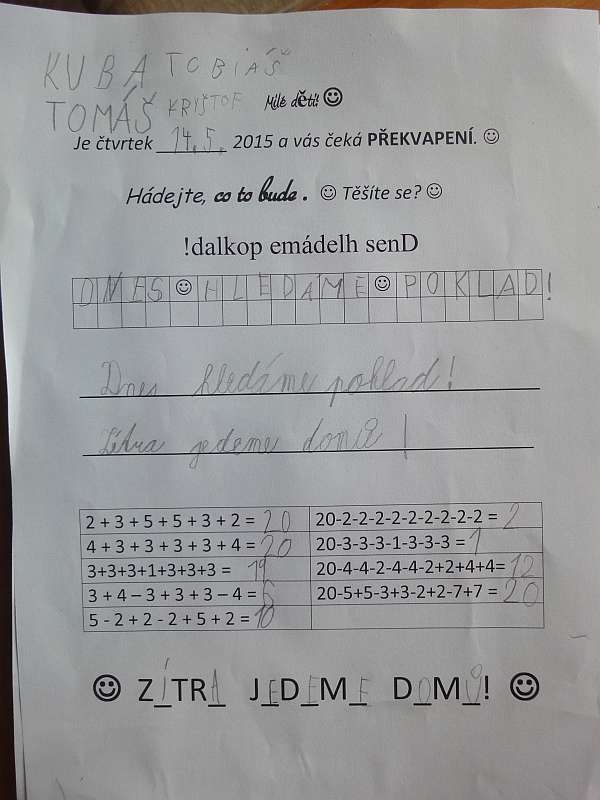 KUBA TOBIÁŠ
TOMÁŠ KRIŠTOF Milé děti! ☺
Je čtvrtek 14.5. 2015 a vás čeká PŘEKVAPENÍ. ☺
Hádejte, co to bude. ☺ Těšíte se? ☺
!dalkop emádelh senD
DNES ☺ HLEDÁME ☺ POKLAD!
Dnes hledáme poklad!
Zítra jedeme domů!
2 + 3 + 5 + 5 + 3 + 2 = 20 20-2-2-2-2-2-2-2-2-2 = 2
4 + 3 + 3 + 3 + 3 + 4 = 20 20-3-3-3-1-3-3-3 = 1
3+3+3+1+3+3+3 = 19 20-4-4-2-4-4-2+2+4+4= 12
3 + 4 – 3 + 3 + 3 – 4 = 6 20-5+5-3+3-2+2-7+7 = 20
5 - 2 + 2 - 2 + 5 + 2 = 10
☺ ZÍTRA JEDEME DOMŮ! ☺